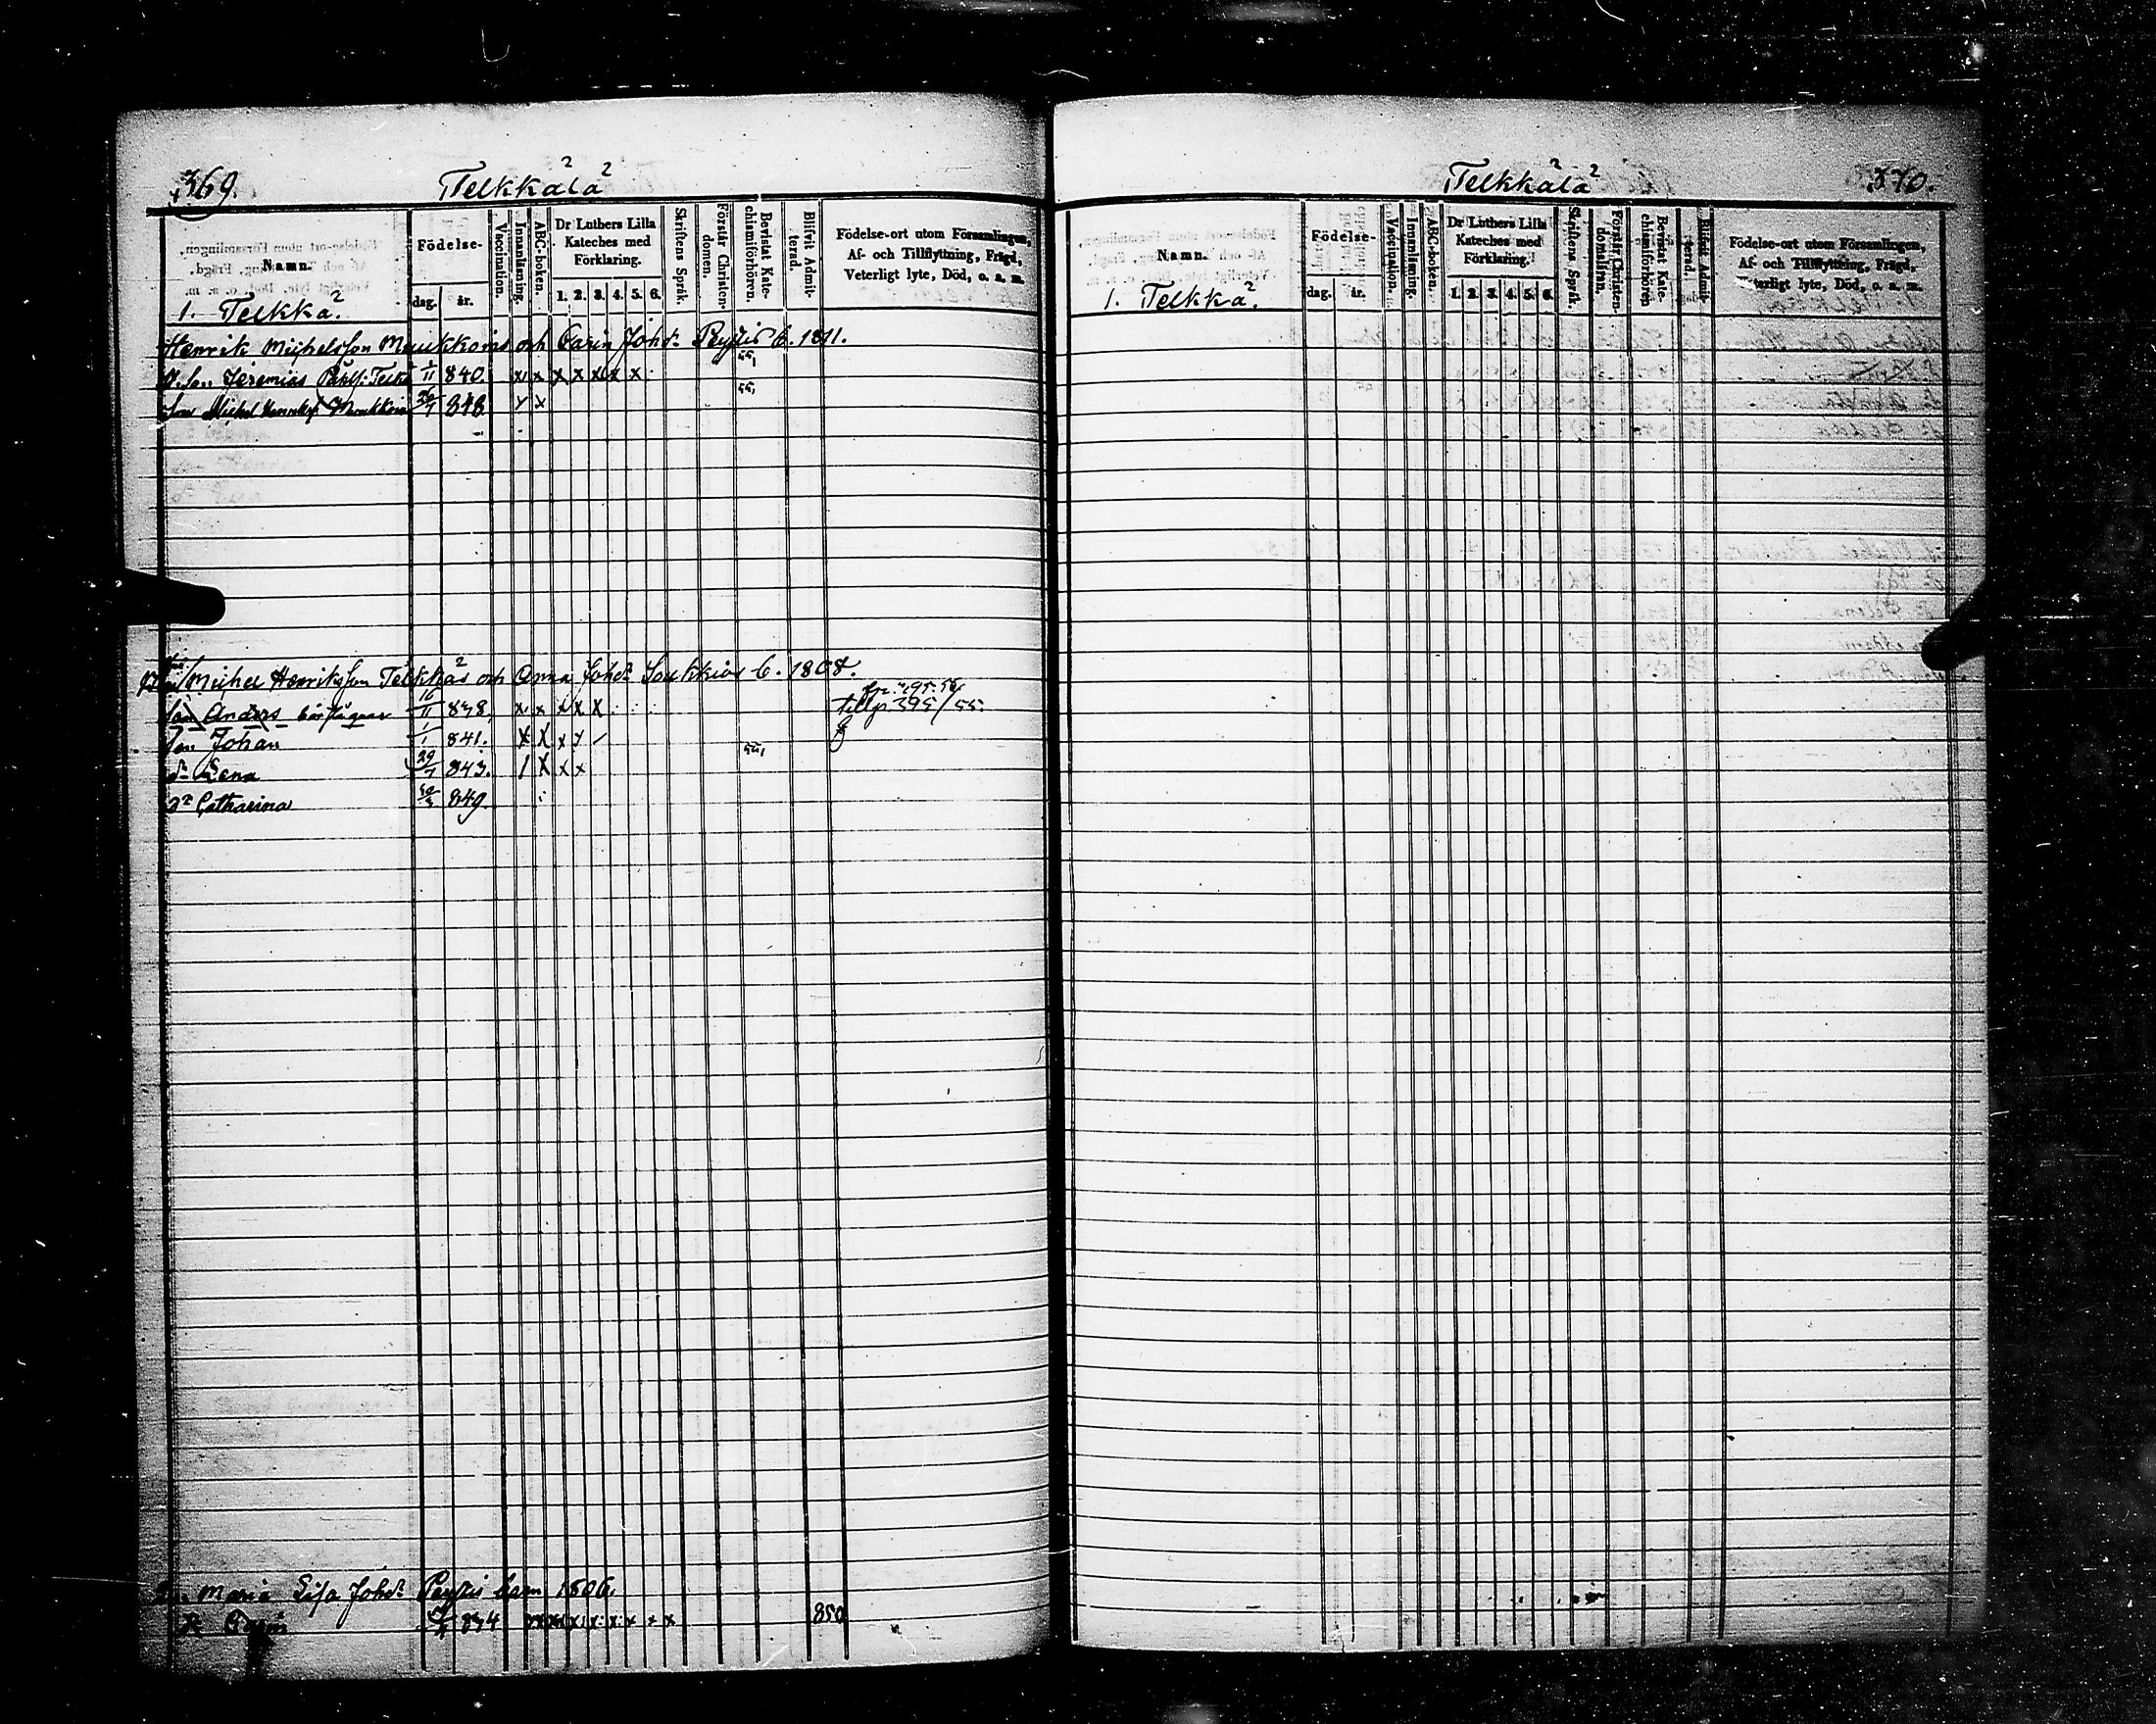 369.
Telkkälä
Namn.
Födelse-
dag. år.
Vaccination.
Innanläsning.
ABC-boken.
Dr Luthers Lilla Kateches med Förklaring.
1. 2. 3. 4. 5. 6.
Skriftens Språk.
Förstår Christendomen.
Bevistat Katechismiförhören.
Blifvit Admitterad.
Födelse-ort utom Församlingen,
Af- och Tillflyttning, Frägd,
Veterligt lyte, Död, o. a. m.
1. Telkkä.
Henrik Michelsson Moukkoins och Carin Johdr Peytis b. 1811.
Son Jeremias Telkkä 1/11 840. x x x x x x x
Son Michel Moukkoin 848. x x
Michel Henriksson Telkkäs och Anna Johdr Soukkiös b. 1808.
Son Anders 16/11 838. x x x x x till p. 395/55.
Son Johan 1/1 841. x x x x
dr Lena 29/7 843. x x x
dr Catharina 849.
Maria Lisa Johdr Peytis barn 1806.
dr Carin 834 x x x x x x x x 850
370.
Telkkälä
Namn.
Födelse-
dag. år.
Vaccination.
Innanläsning.
ABC-boken.
Dr Luthers Lilla Kateches med Förklaring.
1. 2. 3. 4. 5. 6.
Skriftens Språk.
Förstår Christendomsläran.
Bevistat Katechismiförhören
Blifvit Admitterad.
Födelse-ort utom Församlingen,
Af- och Tillflyttning, Frägd,
Veterligt lyte, Död, o. a. m.
1. Telkkä.